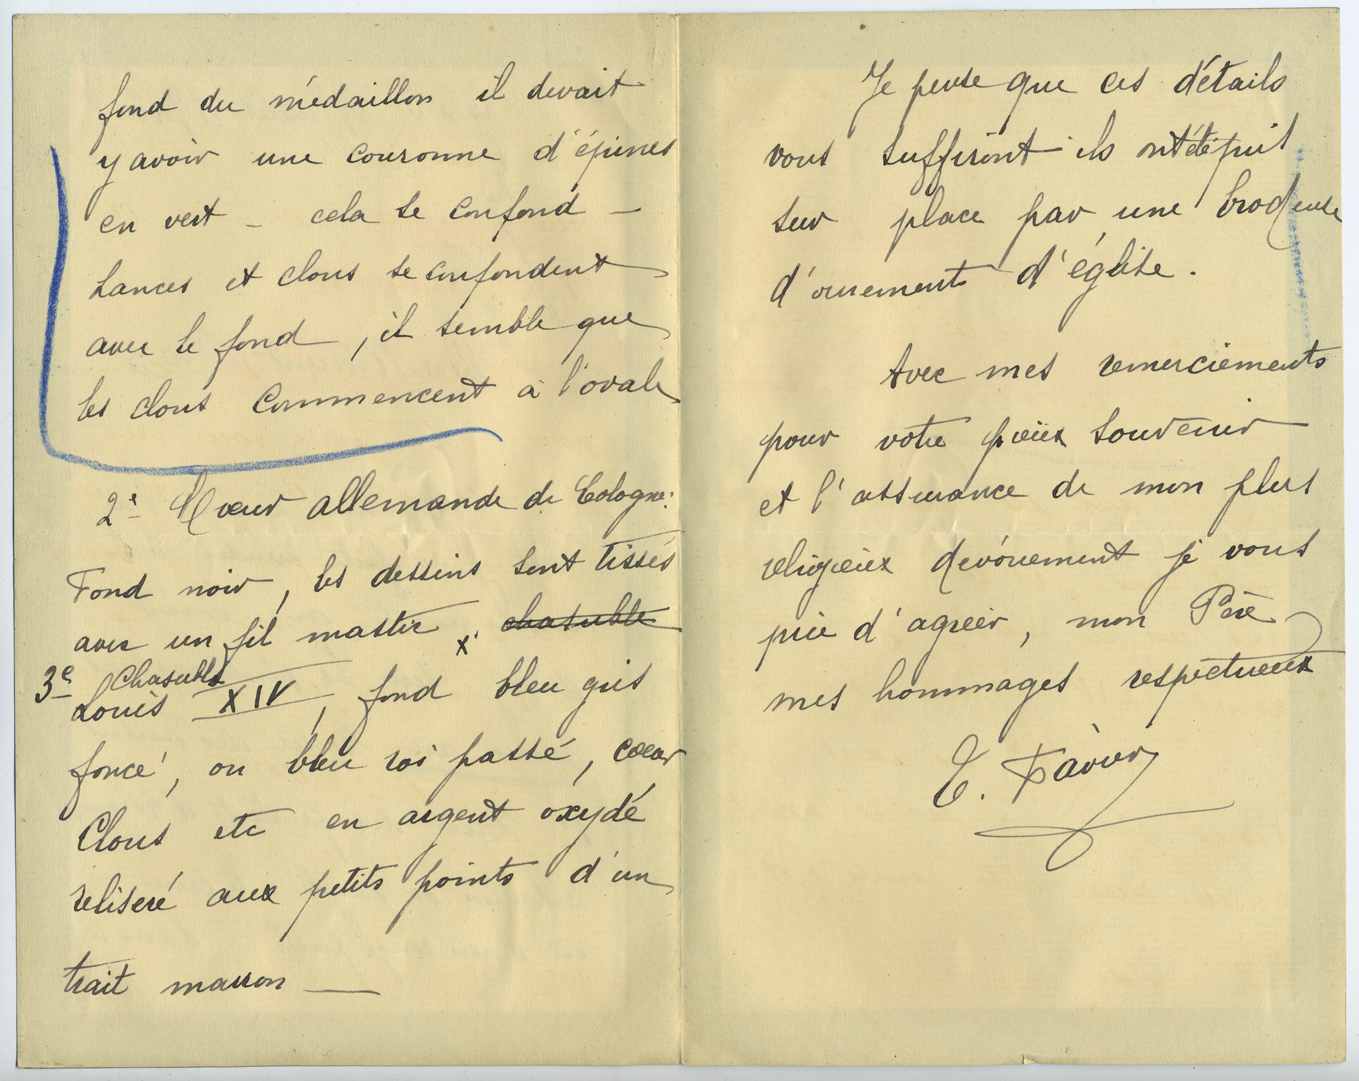 fond du médaillon il devait
y avoir une couronne d'épines
en vert – cela se confond –
Lances et clous se confondent
avec le fond, il semble que
les clous commencent à l'ovale
2e allemande de Cologne.
Fond noir, les dessins sont tissés
avec un fil mastic x. chasuble
3e Chasuble
Louis XIV, fond bleu gris
foncé, ou bleu roi passé, cœur
Clous etc en argent oxydé
reliseré aux petits points d'un
trait marron —
Je pense que ces détails
vous suffiront ils ont été pris
sur place par une brodeuse
d'ornements d'église.
Avec mes remerciements
pour votre pieux souvenir
et l'assurance de mon plus
religieux dévouement je vous
prie d'agréer, mon Père
mes hommages respectueux